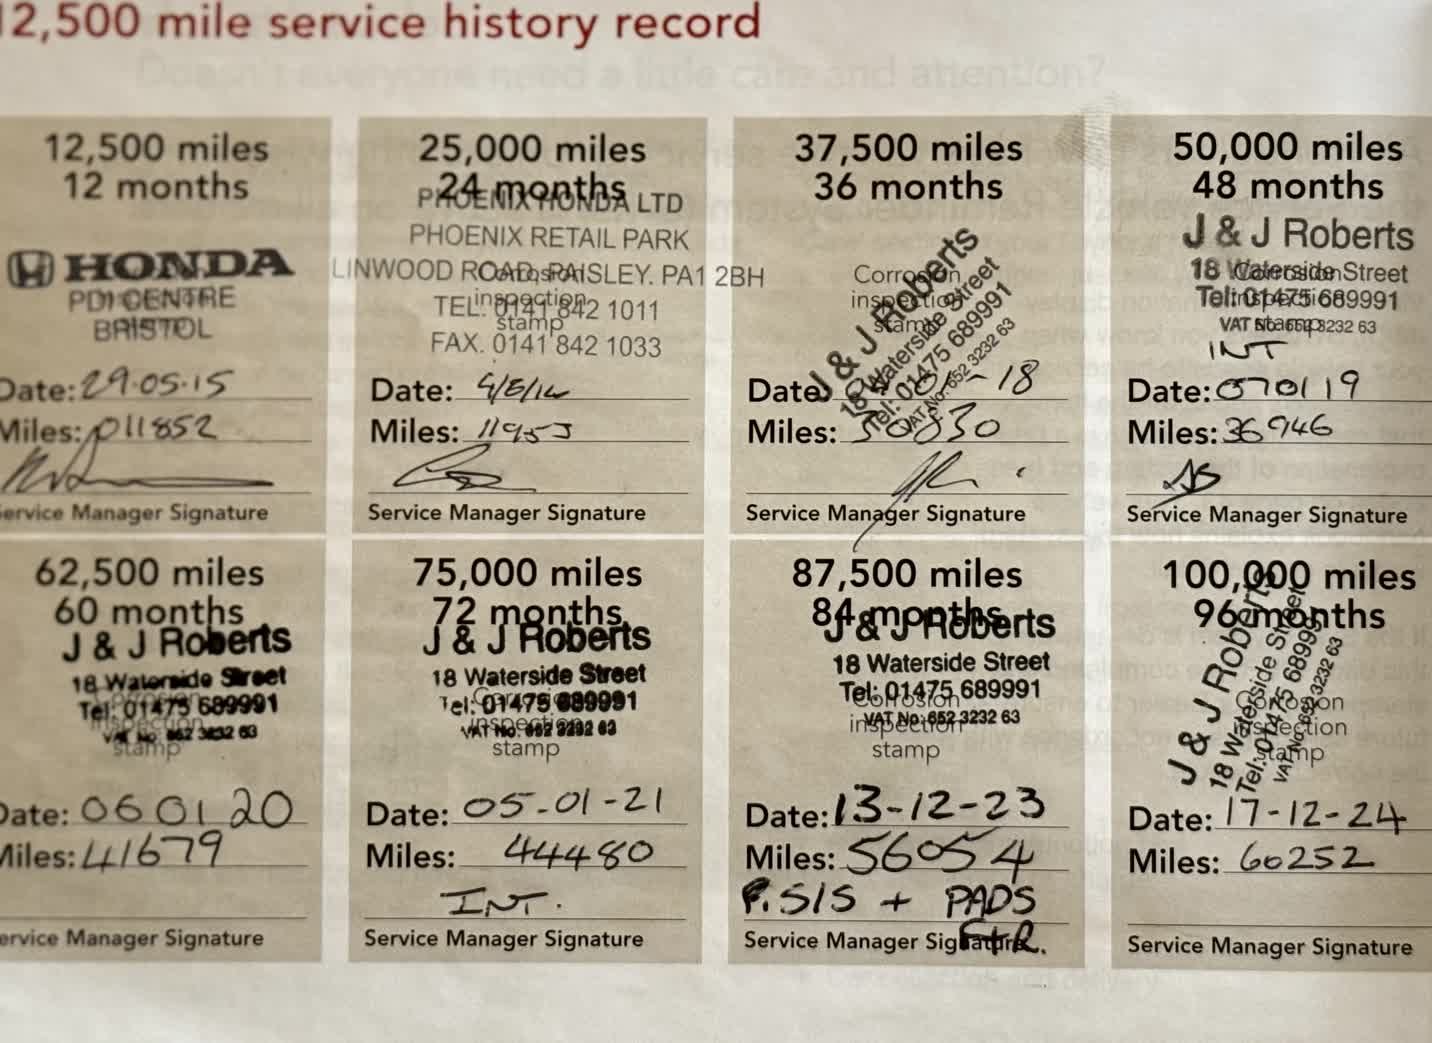 12,500 mile service history record
12,500 miles
12 months
HONDA
PDI CENTRE
BRISTOL
Date: 29.05.15
Miles: 011852
Service Manager Signature
25,000 miles
24 months
PHOENIX HONDA LTD
PHOENIX RETAIL PARK
LINWOOD ROAD, PAISLEY. PA1 2BH
Corrosion
inspection
stamp
TEL. 0141 842 1011
FAX. 0141 842 1033
Date:
Miles:
Service Manager Signature
37,500 miles
36 months
Corrosion
inspection
stamp
J & J Roberts
18 Waterside Street
Tel: 01475 689991
VAT No: 652 3232 63
Date: 01-18
Miles:
Service Manager Signature
50,000 miles
48 months
J & J Roberts
18 Waterside Street
Tel: 01475 689991
VAT No: 652 3232 63
Corrosion
inspection
stamp
INT
Date: 070119
Miles: 36946
Service Manager Signature
62,500 miles
60 months
J & J Roberts
18 Waterside Street
Tel: 01475 689991
VAT No: 652 3232 63
Corrosion
inspection
stamp
Date: 060120
Miles: 41679
Service Manager Signature
75,000 miles
72 months
J & J Roberts
18 Waterside Street
Tel: 01475 689991
VAT No: 652 3232 63
Corrosion
inspection
stamp
Date: 05-01-21
Miles: 44480
INT.
Service Manager Signature
87,500 miles
84 months
J & J Roberts
18 Waterside Street
Tel: 01475 689991
VAT No: 652 3232 63
Corrosion
inspection
stamp
Date: 13-12-23
Miles: 56054
+ PADS
F+R.
Service Manager Signature
100,000 miles
96 months
J & J Roberts
18 Waterside Street
Tel: 01475 689991
VAT No: 652 3232 63
Corrosion
inspection
stamp
Date: 17-12-24
Miles: 60252
Service Manager Signature